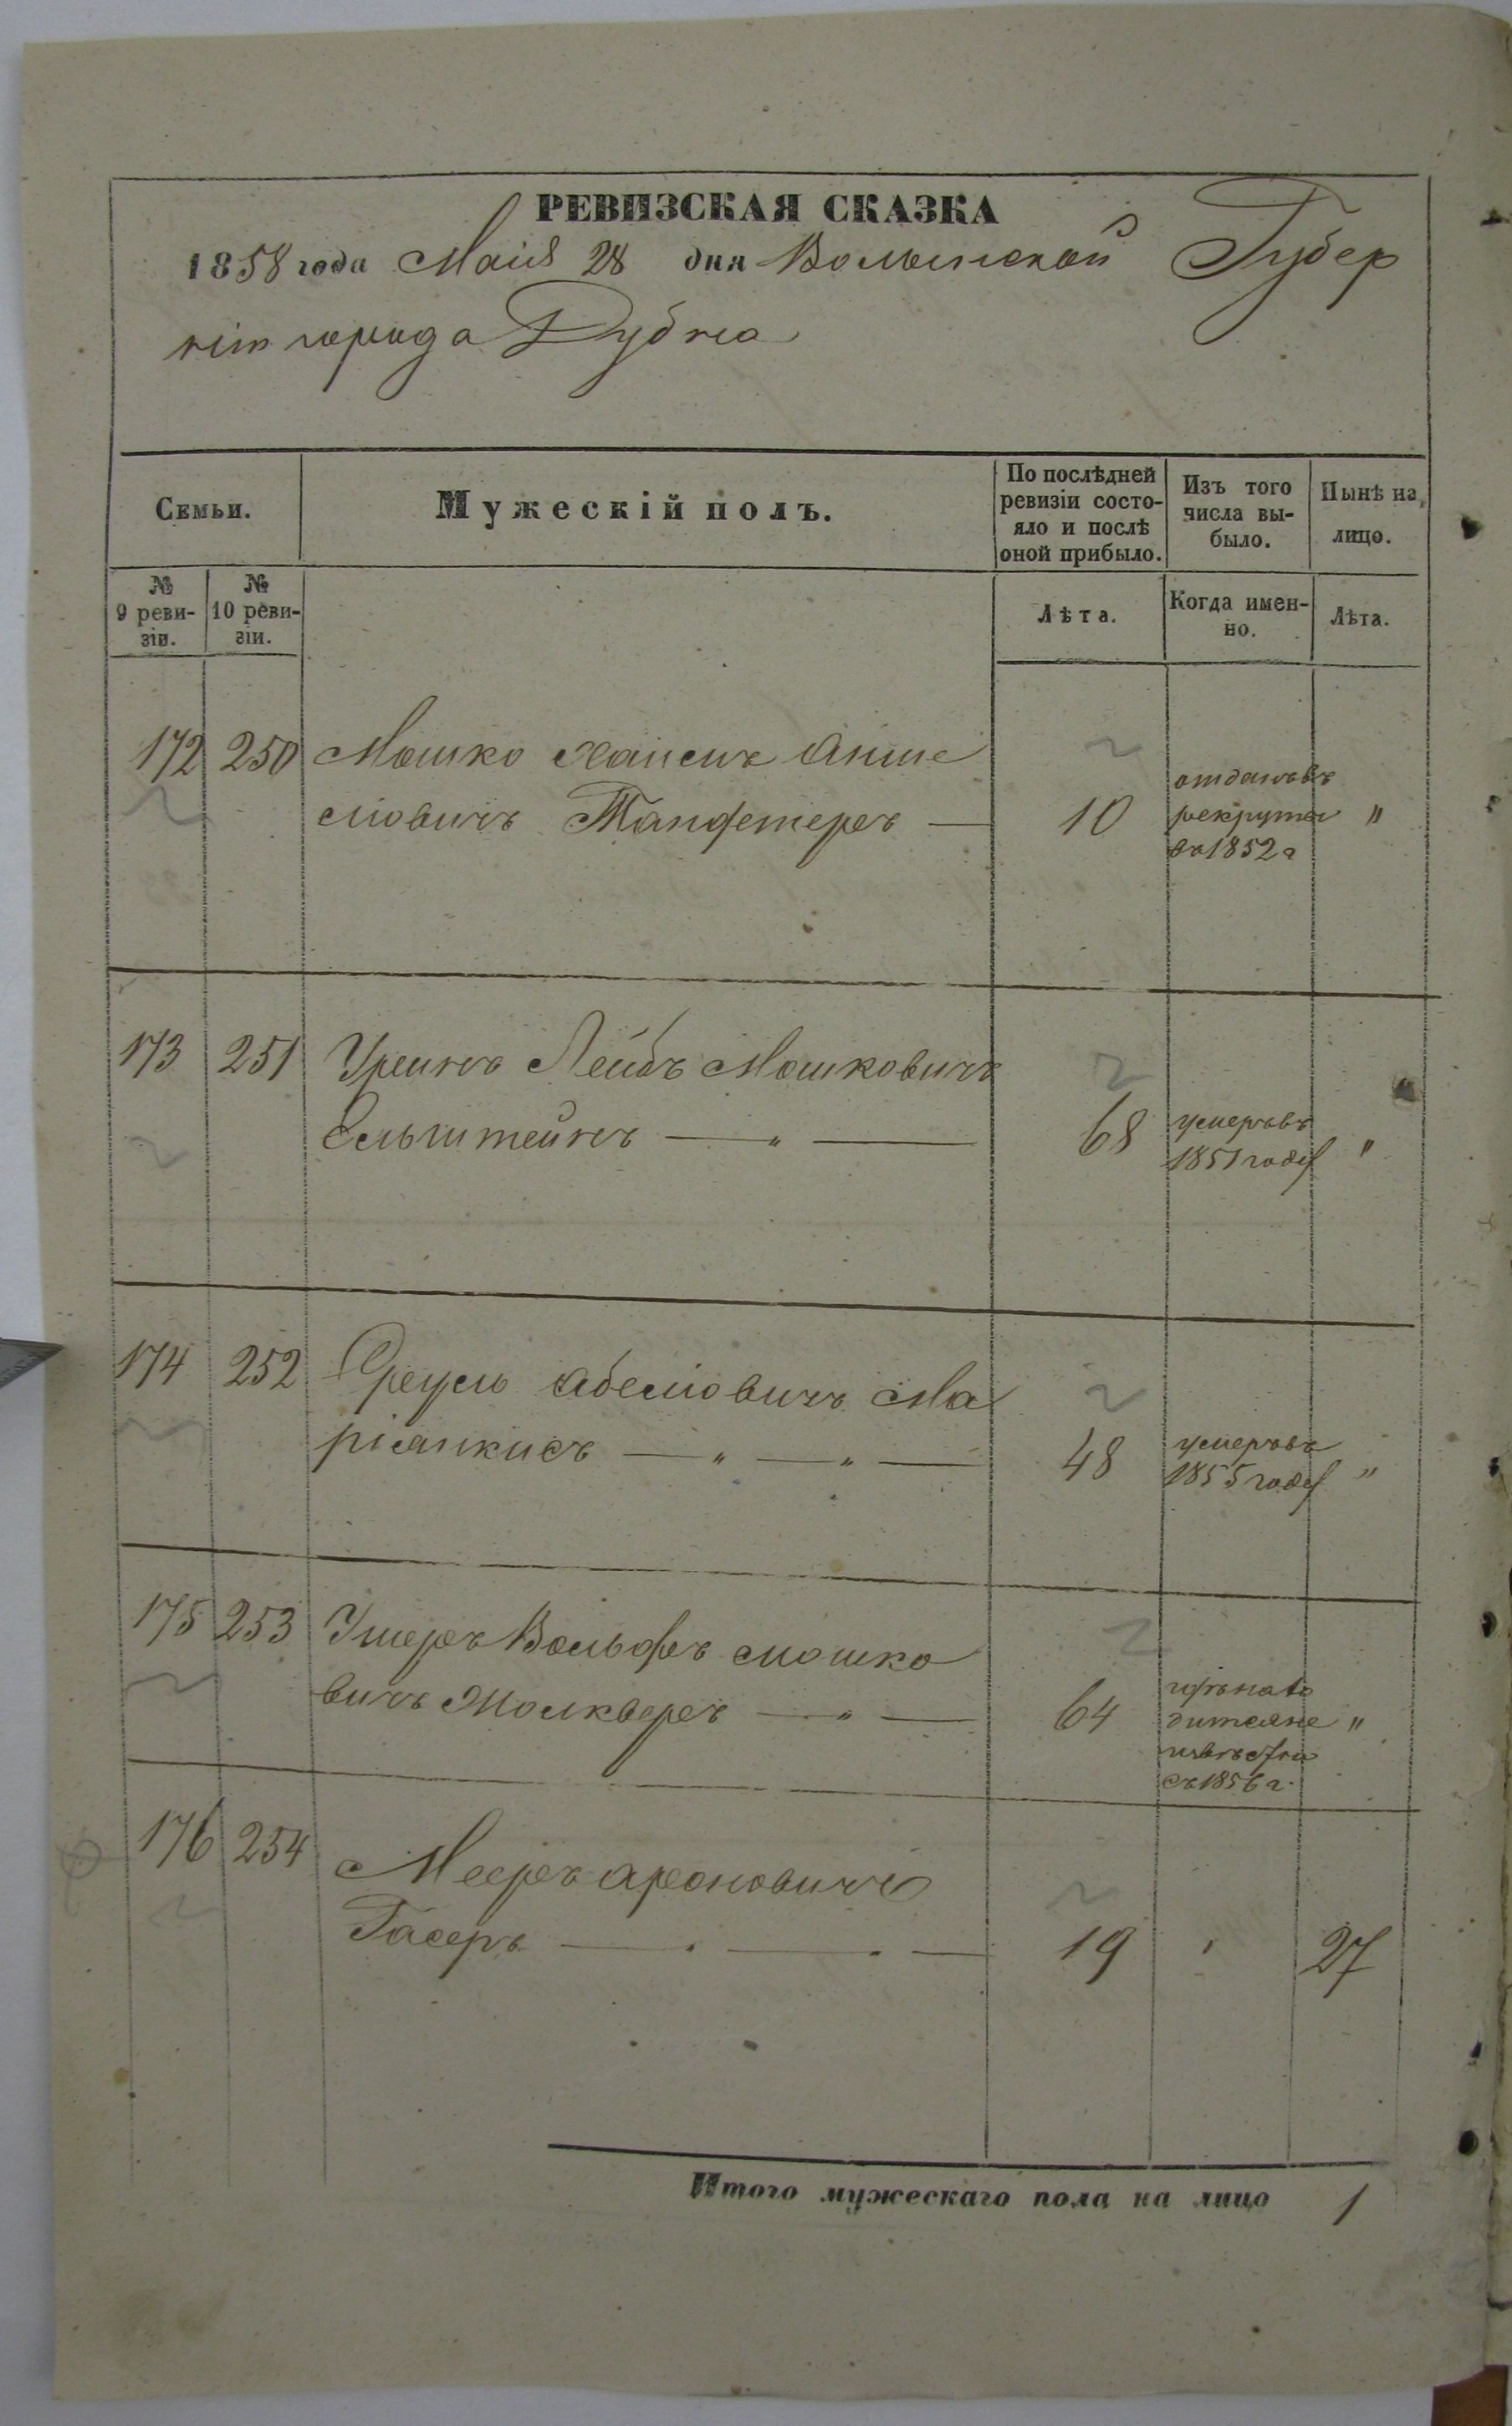 РЕВИЗСКАЯ СКАЗКА
1858 года Маія 28 дня Волынской Губер
ніи города Дубна
Семьи.
Мужескій полъ.
По послѣдней ревизіи состо-
яло и послѣ оной прибыло.
Изъ того числа вы-
было.
Нынѣ на лицо.
№ 9 реви-
зіи.
№ 10 реви-
зіи.
Лѣта.
Когда имен-
но.
Лѣта.
172 250 Мошко Хаимъ Анше
ліовичъ Танфетеръ — 10 "
отданъ въ
рекруты
въ 1852 г
173 251 Лейбъ Мошковичъ
Ельштейнъ — " — 68 "
умеръ въ
1851 году
174 252 Абеліовичъ Ма
ріянкисъ — " — " — 48 "
умеръ въ
1855 году
175 253 Ушеръ Вольфъ Мошко
вичъ — " — 64 "
неизвѣстн
съ 1856 г.
176 254 Мееръ Ароновичъ
Гасеръ — 19 " 27
Итого мужескаго пола на лицо 1